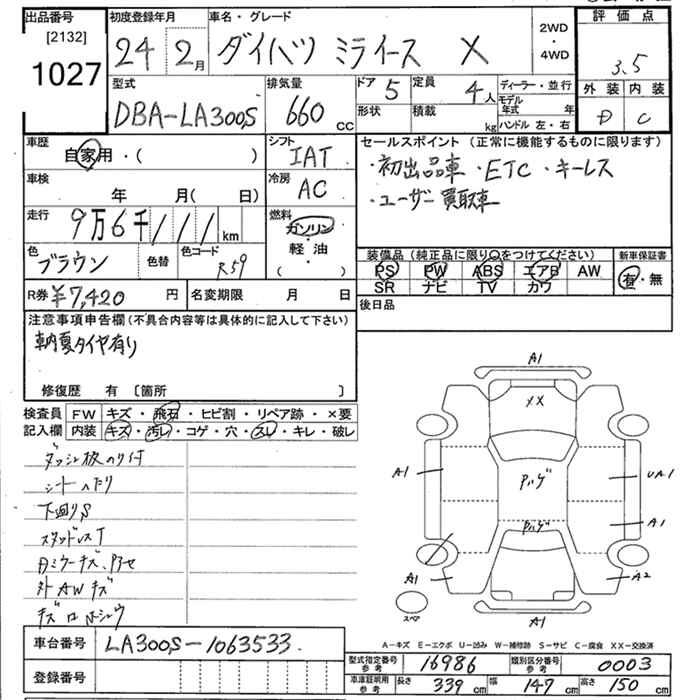 出品番号
[2132]
1027
初度登録年月
24 2月
車名・グレード
ダイハツ ミライース X
2WD
・
4WD
評価点
3.5
外装 内装
D C
型式
DBA-LA300S
排気量
660 CC
ドア 5
形状
定員 4人
積載 kg
ディーラー・並行
モデル年式 年
ハンドル 左・右
車歴
自家用・( )
シフト
IAT
車検
年 月( 日)
冷房
AC
走行
9万6千111km
燃料
ガソリン
・
軽・油
( )
色
ブラウン
色替
色コード
R59
R券 ¥7,420 円
名変期限 月 日
セールスポイント (正常に機能するものに限ります)
・初出品車 ・ETC ・キーレス
・ユーザー買取車
装備品(純正品に限り○をつけてください)
新車保証書
PS PW ABS エアB AW
SR ナビ TV カワ
有・無
後日品
注意事項申告欄(不具合内容等は具体的に記入して下さい)
夏タイヤ有り
修復歴 有 〔箇所 〕
検査員
記入欄
FW キズ・飛石・ヒビ割・リペア跡・×要
内装 キズ・汚レ・コゲ・穴・スレ・キレ・破レ
シートヘタリ
下廻りS
スタッドレスT
外AWキズ
A1
XX
A1
Pハゲ
UA1
Pハゲ
A1
A1
A2
スペア
A1
A-キズ E-エクボ U-凹み W-補修跡 S-サビ C-腐食 XX-交換済
車台番号 LA300S-1063533
登録番号
型式指定番号 参考 16986
類別区分番号 参考 0003
車庫証明用 参考 長さ 339cm 幅 147cm 高さ 150cm